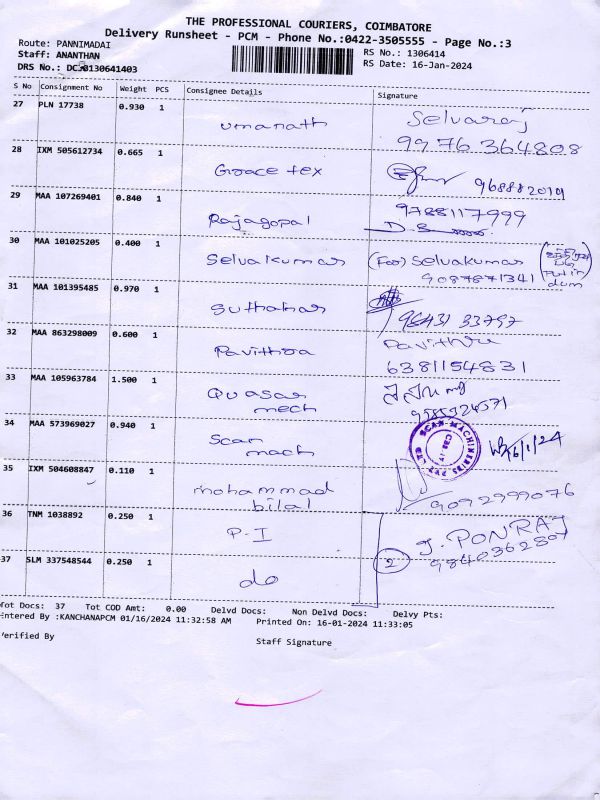 THE PROFESSIONAL COURIERS, COIMBATORE
Delivery Runsheet - PCM - Phone No.:0422-3505555 - Page No.:3
Route: PANNIMADAI
Staff: ANANTHAN
DRS No.: 130641403
RS No.: 1306414
RS Date: 16-Jan-2024
S No Consignment No Weight PCS Consignee Details Signature
27 PLN 17738 0.930 1 umanath Selvaraj
9976364808
28 IXM 505612734 0.665 1 Grace tex
29 MAA 107269401 0.840 1 Rajagopal 9788117999
30 MAA 101025205 0.400 1 Selvakumar (For) Selvakumar
9087871341
31 MAA 101395485 0.970 1 Suthakar
32 MAA 863298009 0.600 1 Pavithra Pavithra
6381154831
33 MAA 105963784 1.500 1 Quasar
mech
34 MAA 573969027 0.940 1 Scan
mach
SCAN MACHINERIES PVT LTD
16/1/24
35 IXM 504608847 0.110 1 mohammad
bilal
9092999076
36 TNM 1038892 0.250 1 P-I J. PONRAJ
37 SLM 337548544 0.250 1 do 2
Tot Docs: 37 Tot COD Amt: 0.00 Delvd Docs: Non Delvd Docs: Delvy Pts:
Entered By :KANCHANAPCM 01/16/2024 11:32:58 AM Printed On: 16-01-2024 11:33:05
Verified By Staff Signature